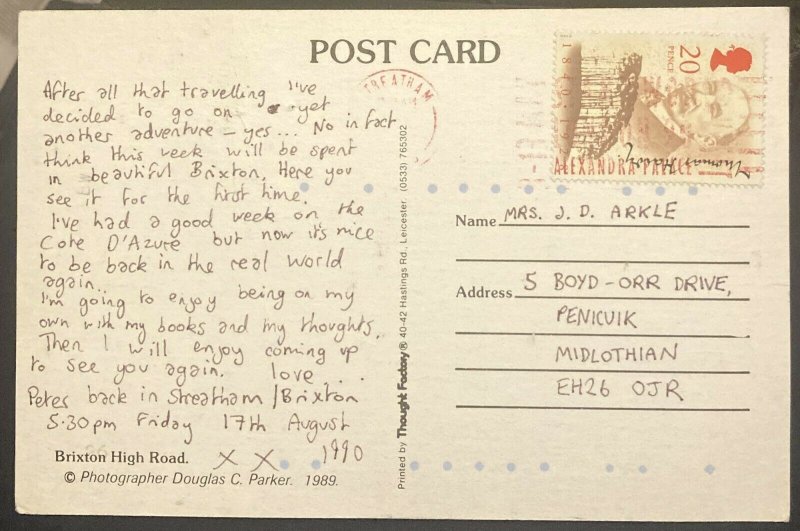 POST CARD
After all that travelling I've
decided to go on yet
another adventure – yes... No in fact
think this week will be spent
in beautiful Brixton. Here you
see it for the first time.
I've had a good week on the
Cote D'Azure but now it's nice
to be back in the real world
again..
I'm going to enjoy being on my
own with my books and my thoughts.
Then I will enjoy coming up
to see you again. love....
Peter back in Streatham / Brixton
5.30pm Friday 17th August
1990
X X
Brixton High Road.
© Photographer Douglas C. Parker. 1989.
Printed by Thought Factory ® 40-42 Hastings Rd., Leicester. (0533) 765302
20
PENCE
Thomas Hardy
1840
STREATHAM
ALEXANDRA PALACE
Name MRS. J. D. ARKLE
Address 5 BOYD-ORR DRIVE,
PENICUIK
MIDLOTHIAN
EH26 0JR